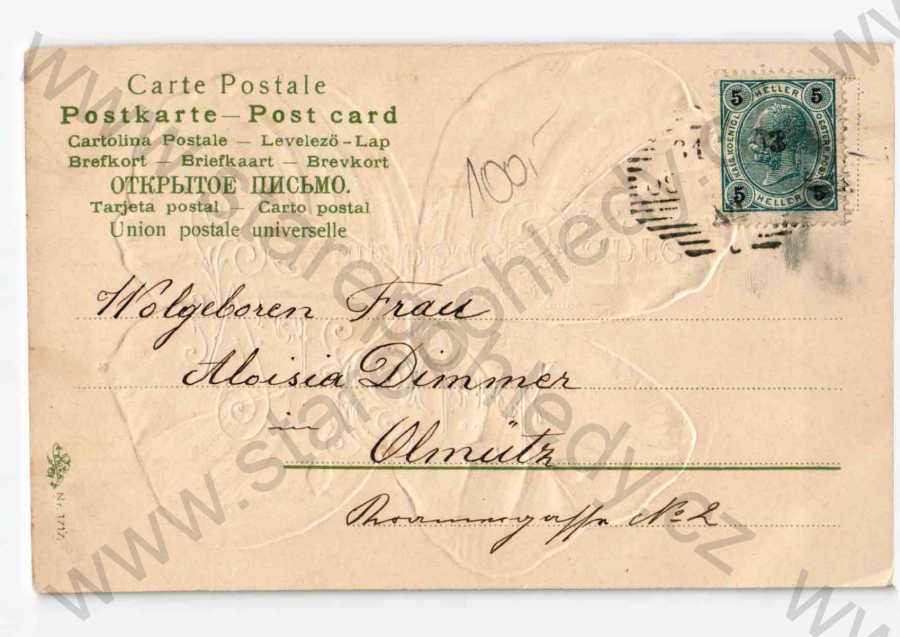 Carte Postale
Postkarte — Post card
Cartolina Postale — Levelező-Lap
Brefkort — Briefkaart — Brevkort
ОТКРЫТОЕ ПИСЬМО.
Tarjeta postal — Carto postal
Union postale universelle
100,-
5 HELLER 5
KAIS. KOENIGL. OESTERR. POST
5 HELLER 5
Wolgeboren Frau
Aloisia Dimmer
in Olmütz
No 2
www.starepohledy.cz